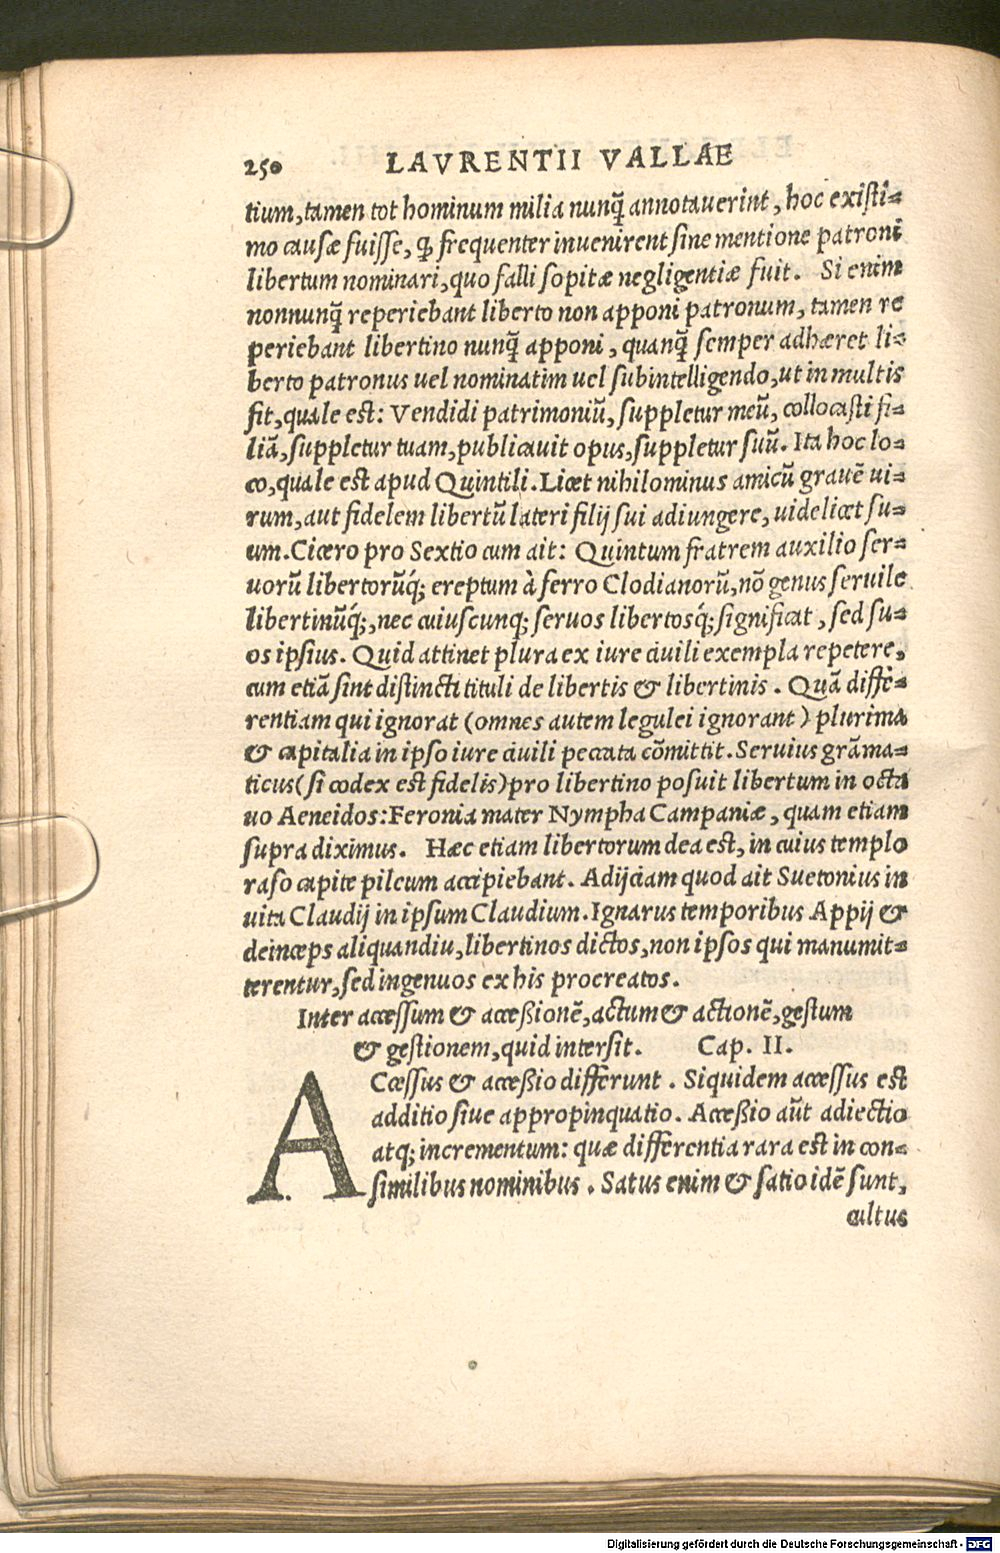 250 LAVRENTII VALLAE
tium, tamen tot hominum milia nunq̃ annotauerint, hoc existi-
mo causæ fuisse, ꝙ frequenter inuenirent sine mentione patroni
libertum nominari, quo falli sopitæ negligentiæ fuit. Si enim
nonnunq̃ reperiebant liberto non apponi patronum, tamen re
periebant libertino nunq̃ apponi, quanq̃ semper adhæret li-
berto patronus uel nominatim uel subintelligendo, ut in multis
fit, quale est: Vendidi patrimoniũ, suppletur meũ, collocasti fi-
liã, suppletur tuam, publicauit opus, suppletur suũ. Ita hoc lo-
co, quale est apud Quintili. Licet nihilominus amicũ grauẽ ui-
rum, aut fidelem libertũ lateri filij sui adiungere, uidelicet su-
um. Cicero pro Sextio cum ait: Quintum fratrem auxilio ser-
uorũ libertorũq́; ereptum à ferro Clodianorũ, nõ genus seruile
libertinũq́;, nec cuiuscunq; seruos libertosq́; significat, sed su-
os ipsius. Quid attinet plura ex iure ciuili exempla repetere,
cum etiã sint distincti tituli de libertis & libertinis. Quã diffe-
rentiam qui ignorat (omnes autem legulei ignorant) plurima
& capitalia in ipso iure ciuili peccata cõmittit. Seruius grãma-
ticus (si codex est fidelis) pro libertino posuit libertum in octa
uo Aeneidos: Feronia mater Nympha Campaniæ, quam etiam
supra diximus. Hæc etiam libertorum dea est, in cuius templo
raso capite pileum accipiebant. Adijciam quod ait Suetonius in
uita Claudij in ipsum Claudium. Ignarus temporibus Appij &
deinceps aliquandiu, libertinos dictos, non ipsos qui manumit-
terentur, sed ingenuos ex his procreatos.
Inter accessum & accessionẽ, actum & actionẽ, gestum
& gestionem, quid intersit. Cap. II.
ACcessus & accessio differunt. Siquidem accessus est
additio siue appropinquatio. Accessio aũt adiectio
atq; incrementum: quæ differentia rara est in con-
similibus nominibus. Satus enim & satio idẽ sunt,
cultus
Digitalisierung gefördert durch die Deutsche Forschungsgemeinschaft - DFG